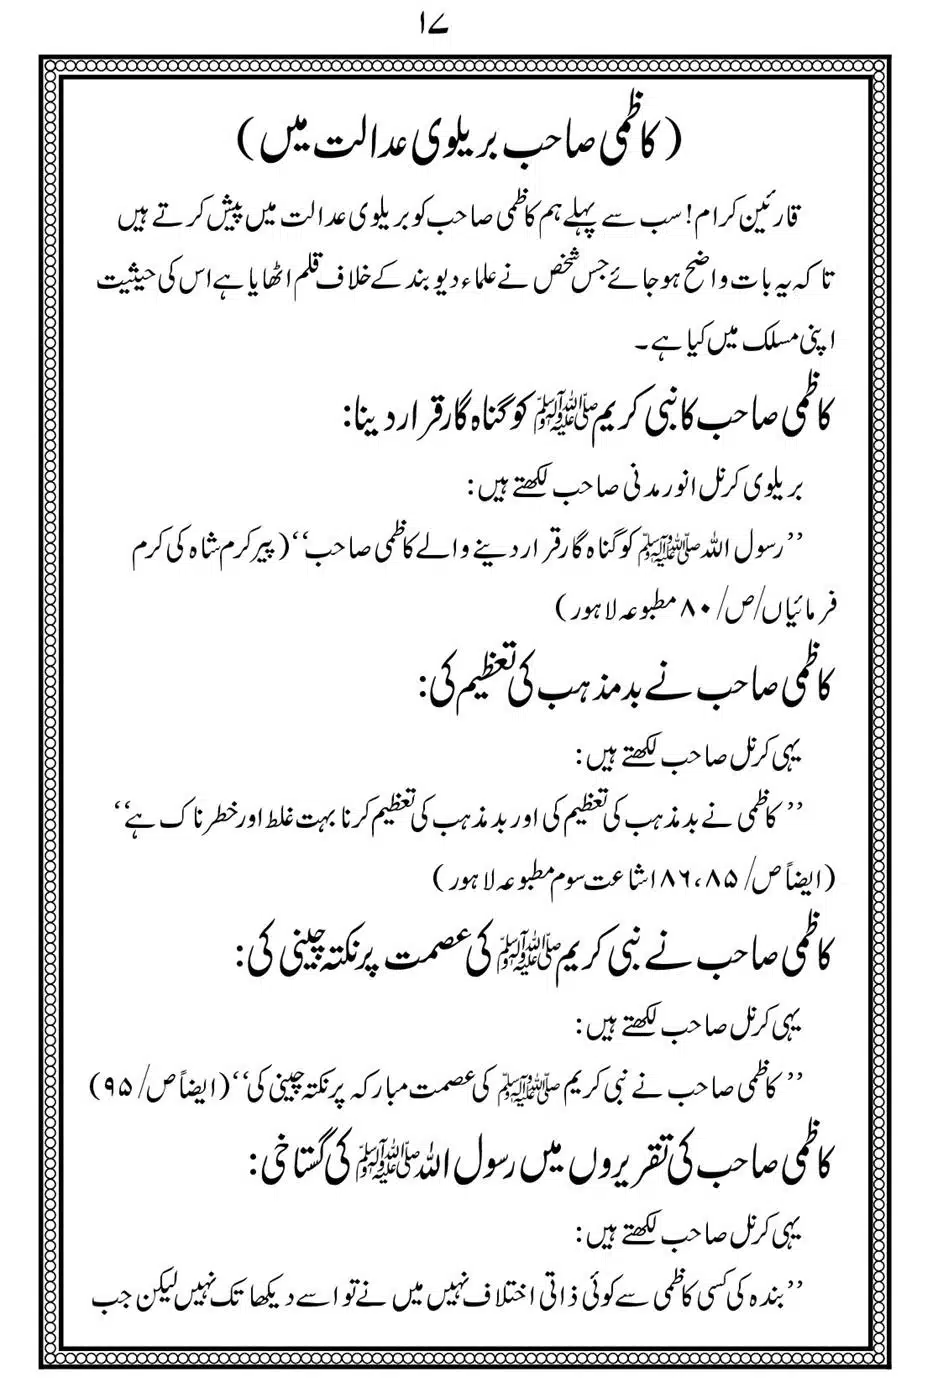 ۱۷
(کاظمی صاحب بریلوی عدالت میں)
قارئین کرام! سب سے پہلے ہم کاظمی صاحب کو بریلوی عدالت میں پیش کرتے ہیں
تاکہ یہ بات واضح ہو جائے جس شخص نے علماء دیوبند کے خلاف قلم اٹھایا ہے اس کی حیثیت
اپنی مسلک میں کیا ہے۔
کاظمی صاحب کا نبی کریم ﷺ کو گناہ گار قرار دینا:
بریلوی کرنل انور مدنی صاحب لکھتے ہیں:
’’رسول اللہ ﷺ کو گناہ گار قرار دینے والے کاظمی صاحب‘‘ (پیر کرم شاہ کی کرم
فرمائیاں/ص/۸۰ مطبوعہ لاہور)
کاظمی صاحب نے بدمذہب کی تعظیم کی:
یہی کرنل صاحب لکھتے ہیں:
’’کاظمی نے بدمذہب کی تعظیم کی اور بدمذہب کی تعظیم کرنا بہت غلط اور خطرناک ہے‘‘
(ایضاً ص/۸۶،۸۵ اشاعت سوم مطبوعہ لاہور)
کاظمی صاحب نے نبی کریم ﷺ کی عصمت پر نکتہ چینی کی:
یہی کرنل صاحب لکھتے ہیں:
’’کاظمی صاحب نے نبی کریم ﷺ کی عصمت مبارکہ پر نکتہ چینی کی‘‘ (ایضاً ص/۹۵)
کاظمی صاحب کی تقریروں میں رسول اللہ ﷺ کی گستاخی:
یہی کرنل صاحب لکھتے ہیں:
’’بندہ کی کسی کاظمی سے کوئی ذاتی اختلاف نہیں میں نے تو اسے دیکھا تک نہیں لیکن جب